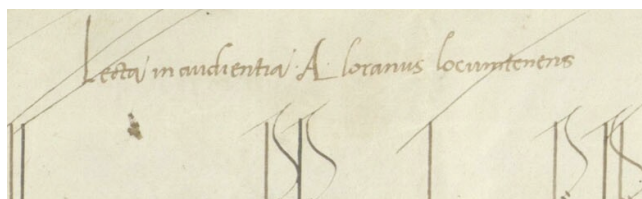 Lecta in audientia A loranus locumtenens